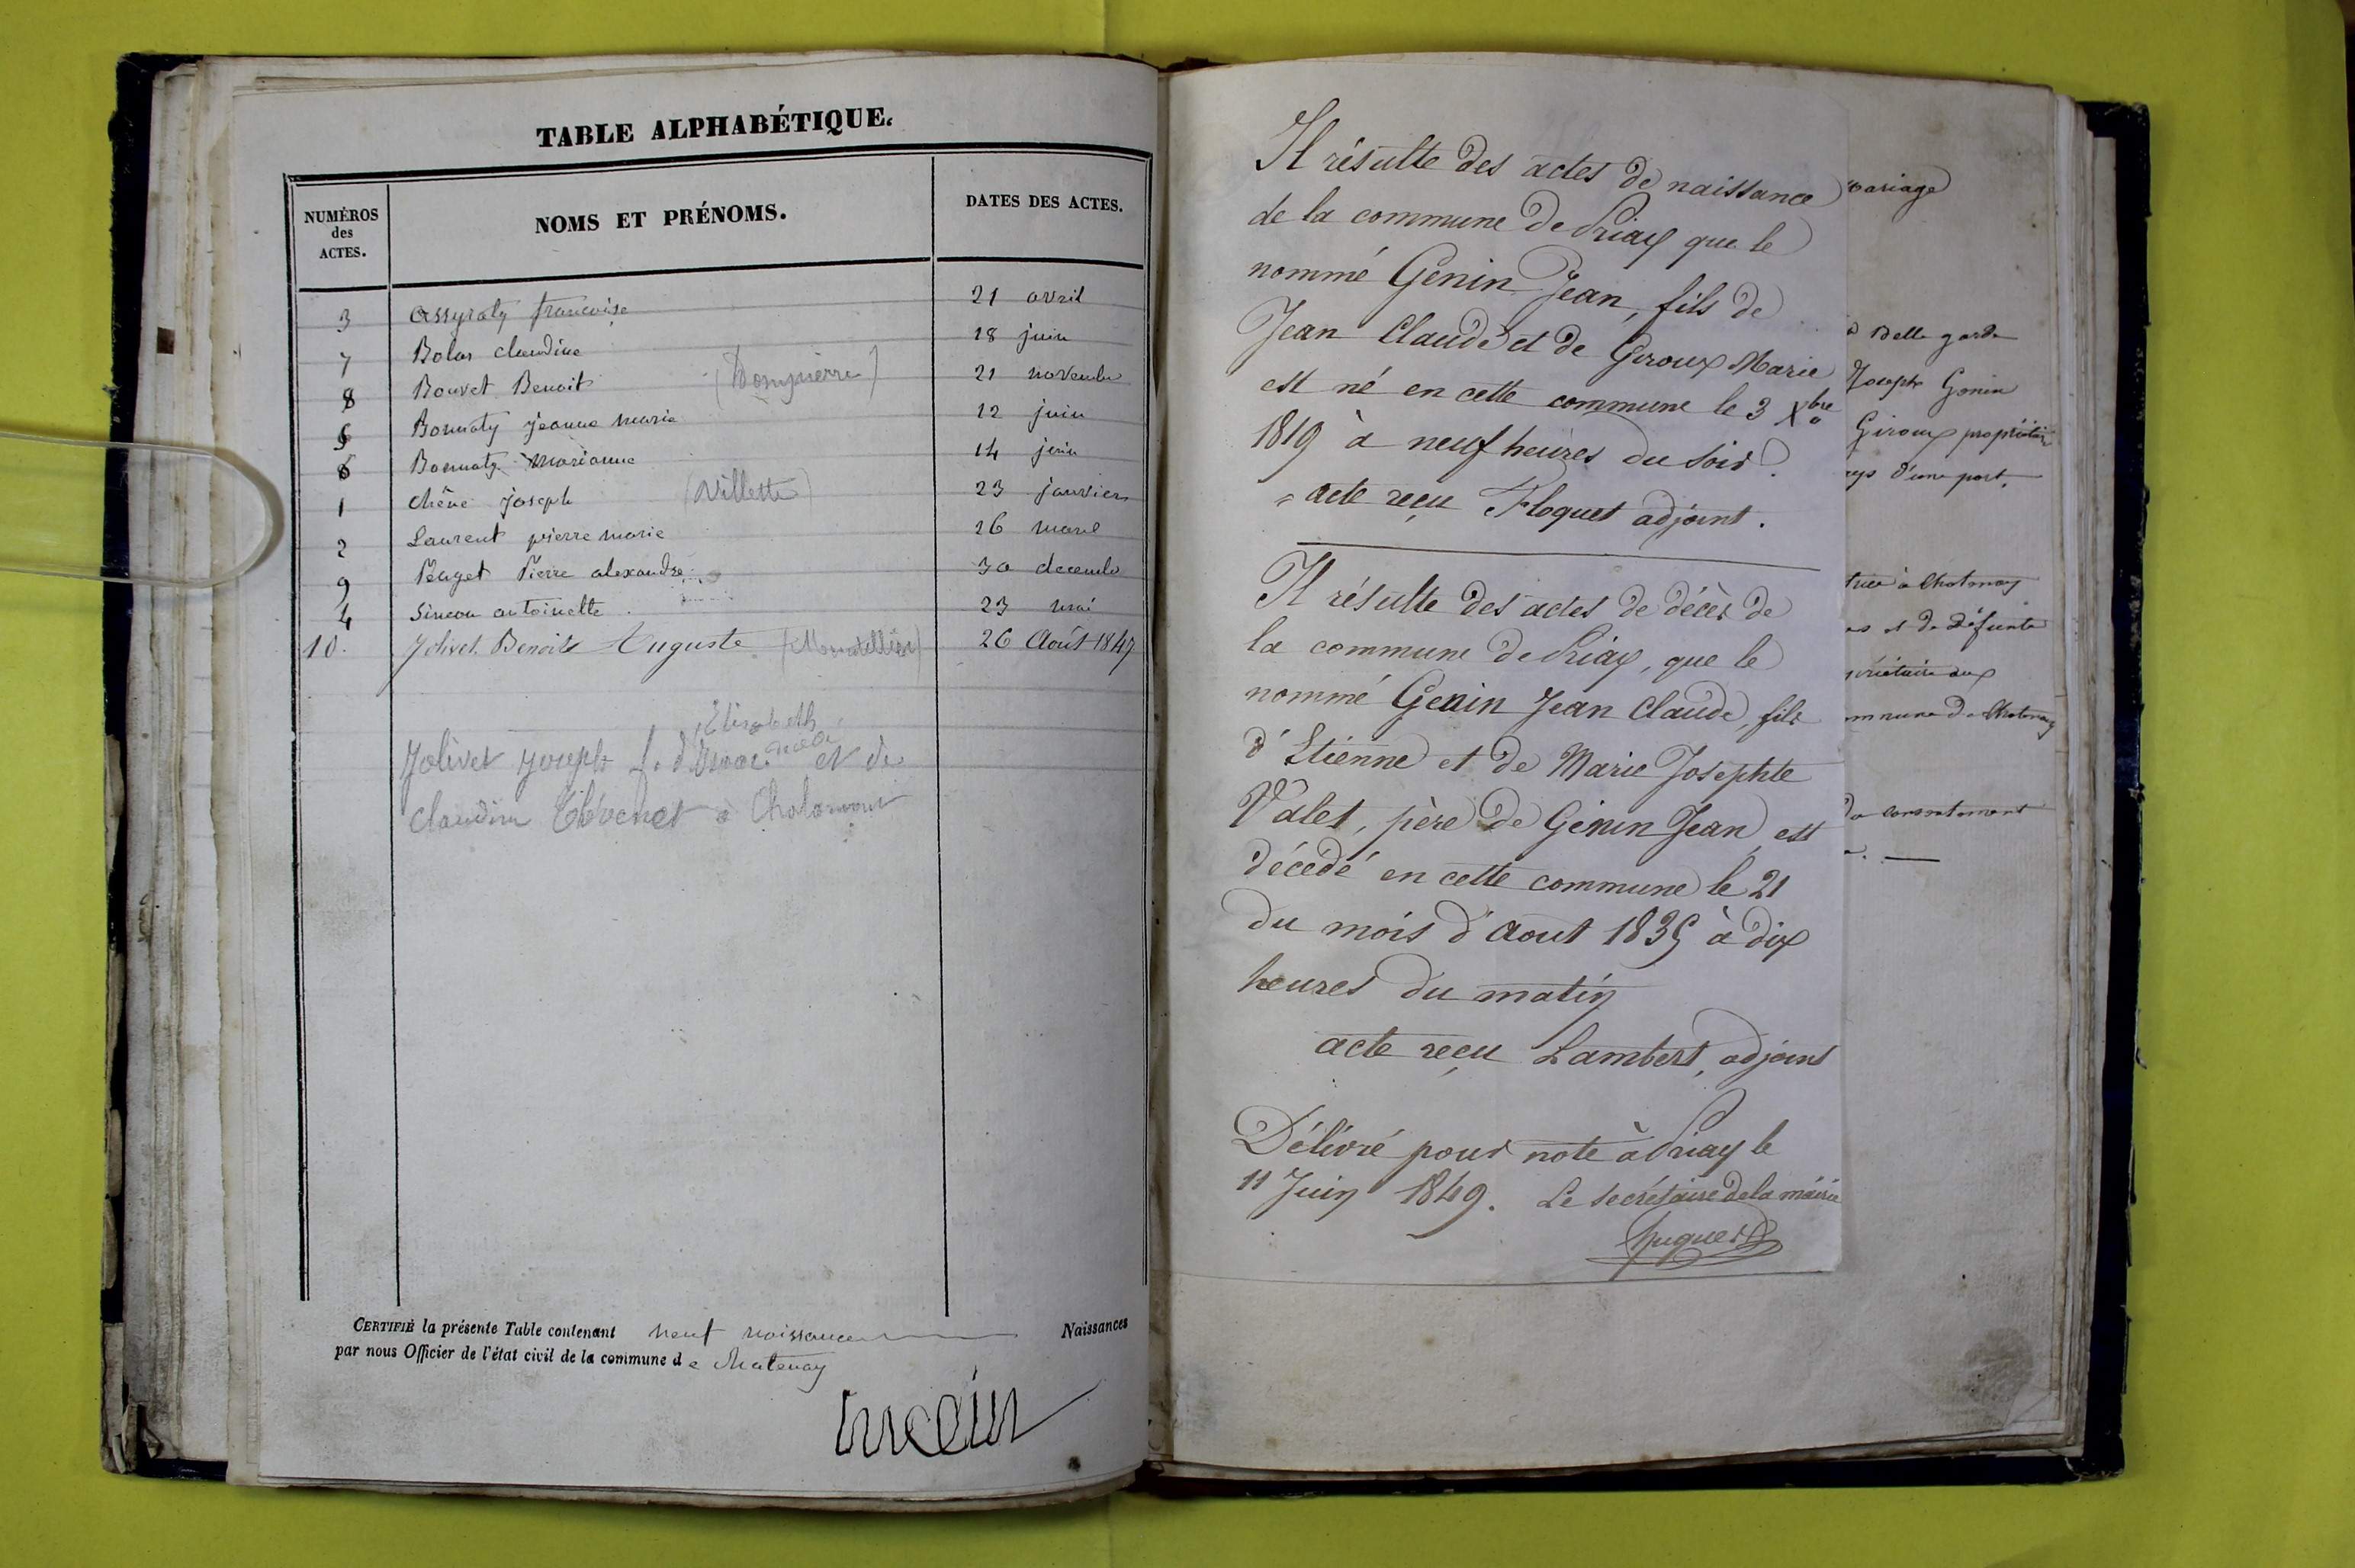 TABLE ALPHABÉTIQUE.
NUMÉROS
des
ACTES.
NOMS ET PRÉNOMS.
DATES DES ACTES.
3 Assyraty francoise 21 avril
7 Bolas claudine 18 juin
8 Bouvet Benoit (Dompierre) 21 novembre
5 Bonnaty jeanne marie 12 juin
6 Bonnaty Marianne 14 juin
1 Chêne joseph (Villette) 23 janvier
2 Laurent pierre marie 26 mars
9 Peaget Pierre alexandre 30 decembre
4 Simeon antoinette 23 mai
10. Jolivet Benoit Auguste 26 Août 1847
Elisabeth
Jolivet Joseph f. d et de
Claudine à Chalamont
CERTIFIÉ la présente Table contenant neuf naissances Naissances
par nous Officier de l'état civil de la commune de Chatenay
Il résulte des actes de naissance
de la commune de Priay que le
nommé Genin Jean, fils de
Jean Claude et de Giroux Marie
est né en cette commune le 3 Xbre
1819 à neuf heures du soir.
acte reçu Floquet adjoint.
Il résulte des actes de décès de
la commune de Priay, que le
nommé Genin Jean Claude, fils
d'Etienne et de Marie Josephte
Valet, père de Genin Jean, est
décédé en cette commune le 21
du mois d'Aout 1835 à dix
heures du matin
acte reçu Lambert, adjoint
Délivré pour note à Priay le
11 Juin 1849. Le secrétaire de la mairie
Huguet
ariage
Belle garde
Joseph Genin
Giroux propriétaire
d'une part,
à Chatenay
et de défunte
priétaire aux
mmune de Chatenay
consentement